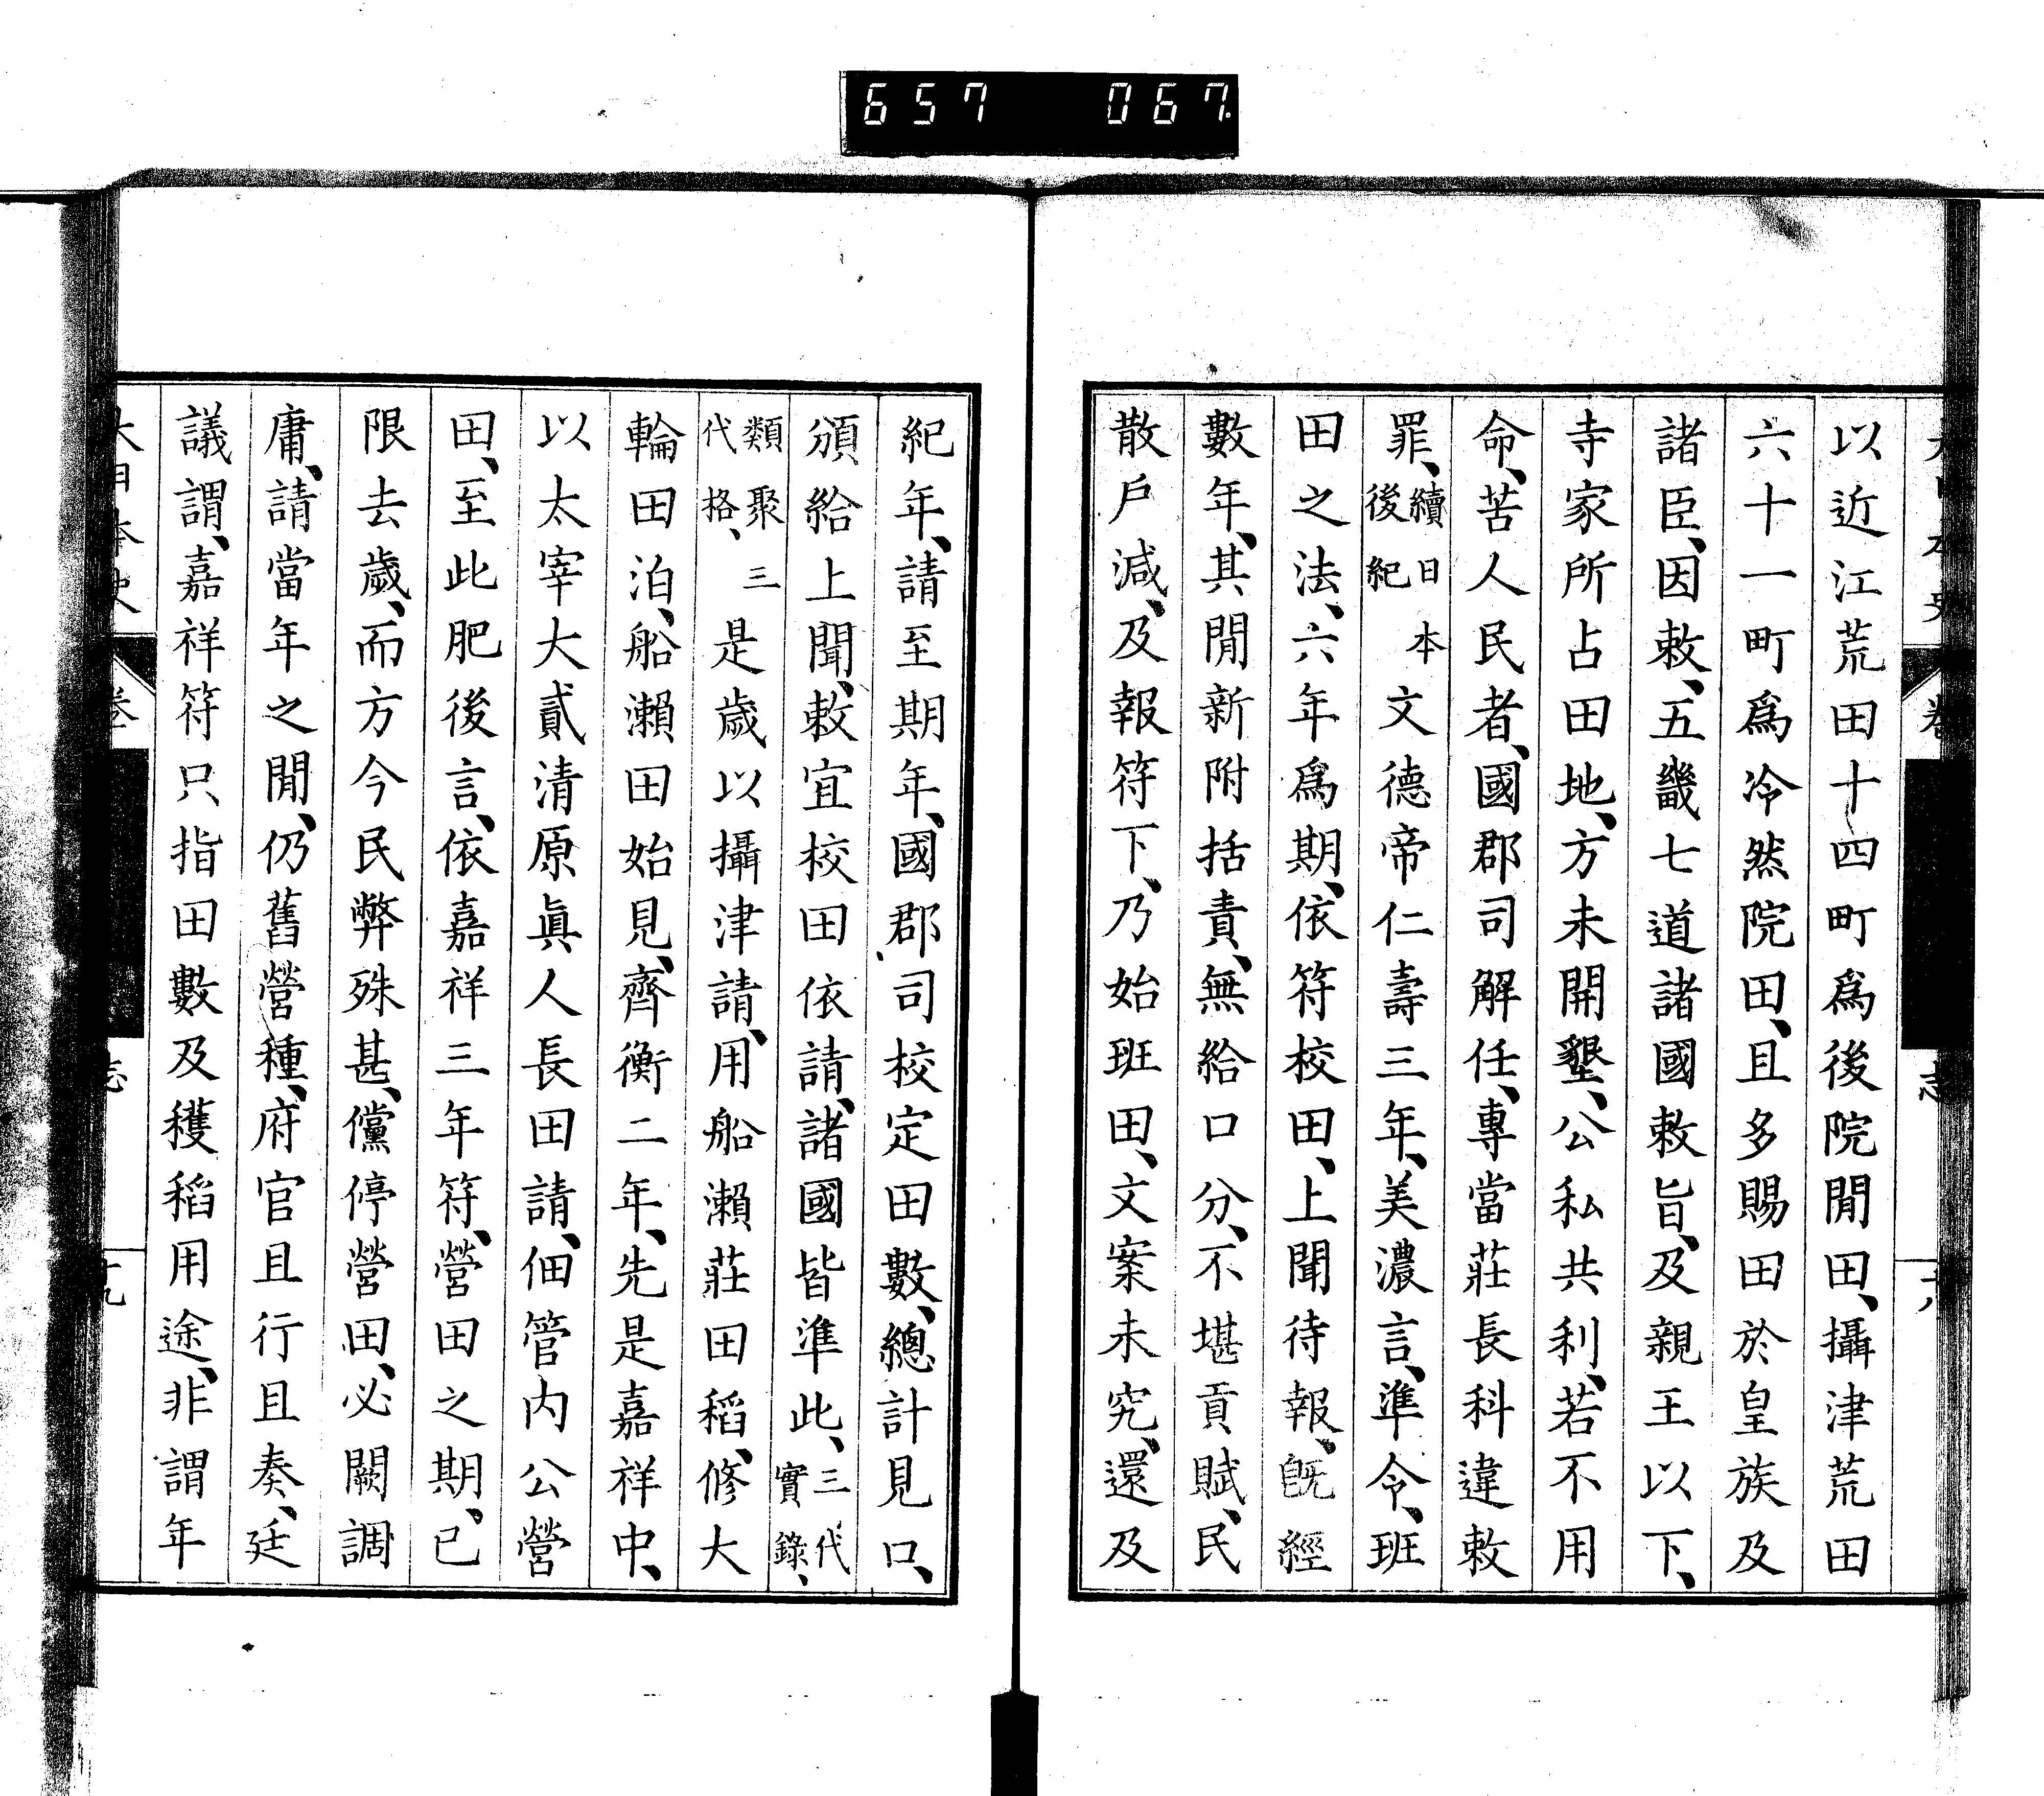 657 067.
以近江荒田十四町爲後院閒田、攝津荒田
六十一町爲冷然院田、且多賜田於皇族及
諸臣、因敕、五畿七道諸國敕旨、及親王以下、
寺家所占田地、方未開墾、公私共利、若不用
命、苦人民者、國郡司解任、專當莊長科違敕
罪、續日本後紀 文德帝仁壽三年、美濃言、準令、班
田之法、六年爲期、依符校田、上聞待報、旣經
數年、其閒新附括責、無給口分、不堪貢賦、民
散戶減、及報符下、乃始班田、文案未究、還及
紀年、請至期年、國郡司校定田數、總計見口、
頒給上聞、敕宜校田依請、諸國皆準此、三代實錄、
類聚三代格、是歲以攝津請、用船瀨莊田稻、修大
輪田泊、船瀨田始見、齊衡二年、先是嘉祥中、
以太宰大貳清原眞人長田請、佃管内公營
田、至此肥後言、依嘉祥三年符、營田之期、已
限去歲、而方今民弊殊甚、儻停營田、必闕調
庸、請當年之閒、仍舊營種、府官且行且奏、廷
議謂、嘉祥符只指田數及穫稻用途、非謂年
大日本史 卷 志